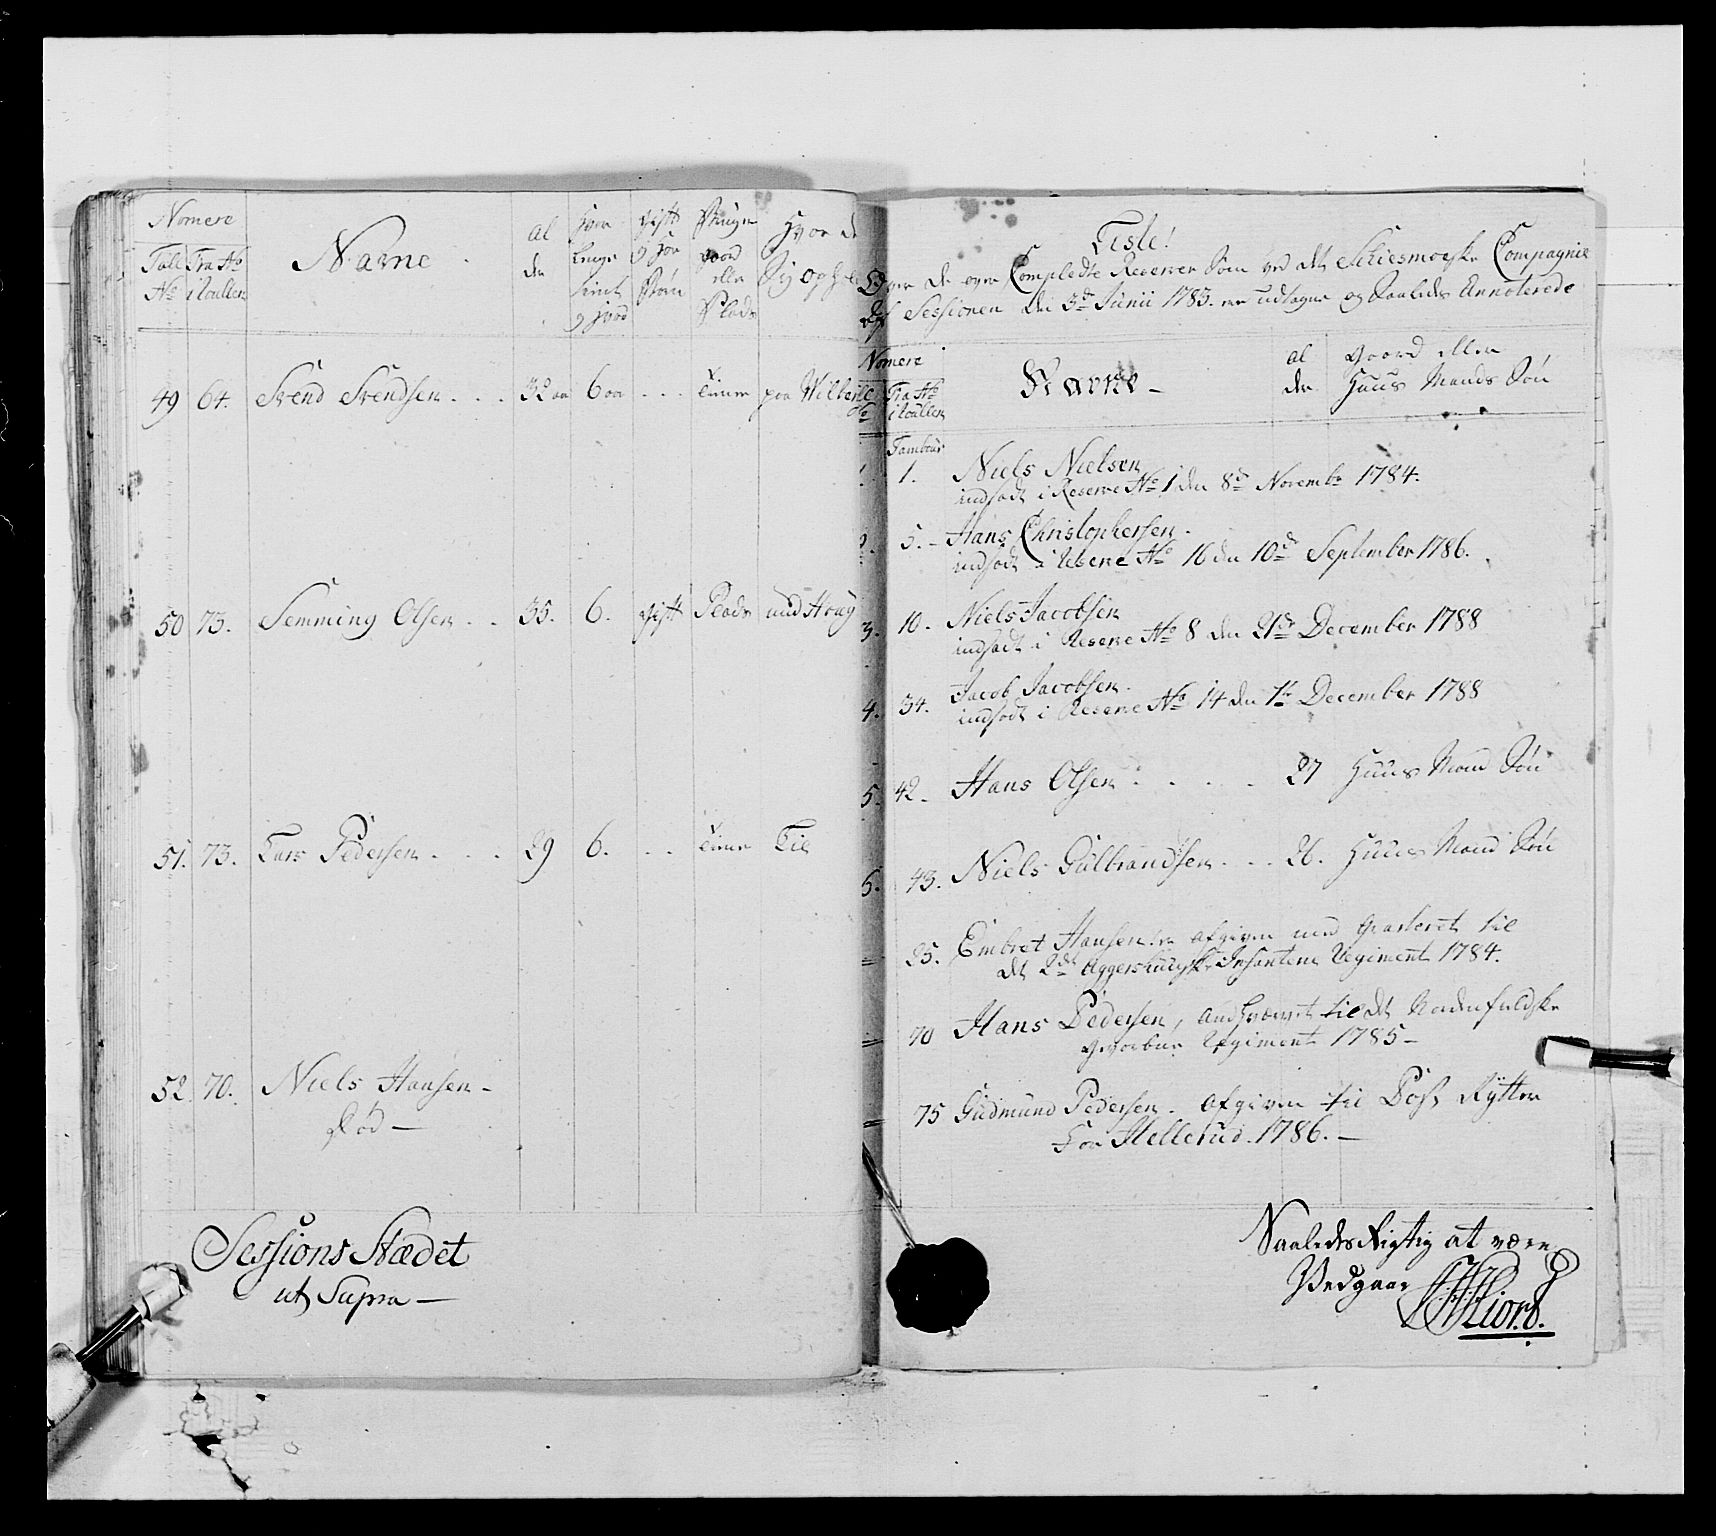 Nomere
Tall No
Fra No i Roullen
Navne
Al der
Hvor Længe tient
Gift
Hvor de
49 64. Svend Svendsen . . . 32 aar 6 aar . . . Tiener paa
50 73. Semming Olsen . . 35. 6. Gift Plads
51. 73. Lars Pedersen . . . 29 6. . . Tiener Til
52. 70. Niels Hansen –
Død –
Sessions Stædet
ut Supra –
Liste!
Over de over Complette Reserver Som ved det Schiesmoeske Compagnie
Sessionen den 3de Junii 1783. er udtagne og Saaledes Annoterede
Nomere
Fra No i Roullen
Navne –
Al der
Gaard eller
Huus Mands Søn
Tambour
1. Niels Nielsen
indsadt i Reserve No 1 den 8de Novembr 1784.
5. – Hans Christophersen.
indsadt i Reserve No 16 den 10de September 1786.
3. 10. Niels Jacobsen
indsadt i Reserve No 8 den 21de December 1788
4. 34. Jacob Jacobsen.
indsadt i Reserve No 14 den 1te December 1788
5. 42. Hans Olsen . . . . . 27 Huus Mand Søn
6. 43. Niels Gulbrandsen . . . 26. Huus Mand Søn
25. Embret Hansen er afgiven med Qvarteret til
det 2det Aggershuuske Infanterie Regiment 1784.
70 Hans Pedersen, andhværvet til det Nordenfieldske
Gevorbne Regiment 1785 –
75 Gudmund Pedersen. Afgiven til Post Rytter
for Hellerud. 1786. –
Saaledes Rigtig at være
Vedgaar